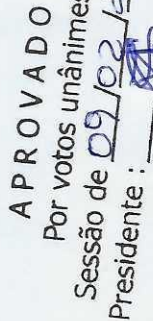 APROVADO
Por votos unânimes
Sessão de 09/02/
Presidente :